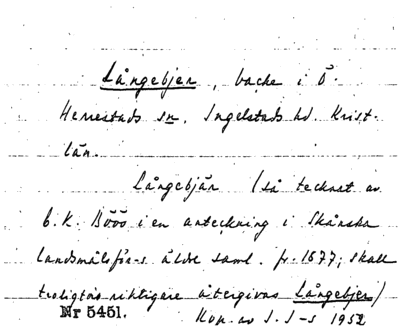 Långebjer, backe i Ö.
Herrestads sn. Ingelstads hd. Krist.
län.
Långebjär (så tecknat av
C. K. Bööö i en anteckning i Skånska
landsmålsför-s äldre saml. fr. 1877; skall
troligtvis riktigare återgivas Långebjer)
Nr 5451.
Kop. av I. I-s 1952